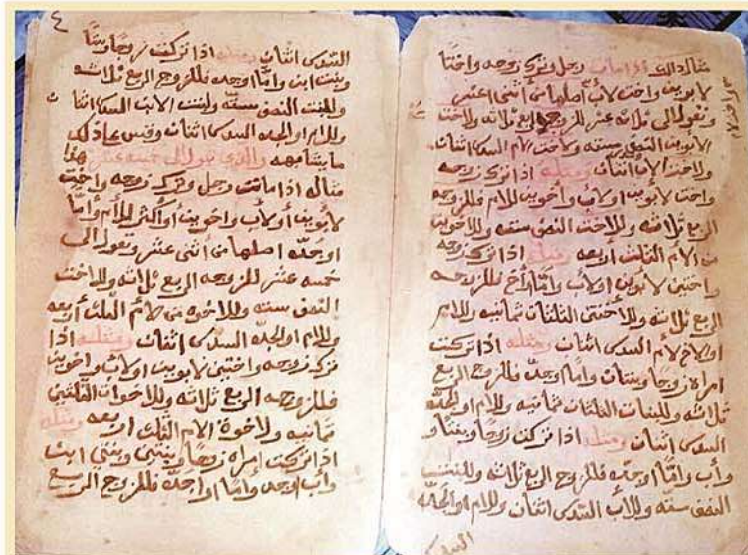 مثال ذالك اذا مات رجل وترك زوجه واختا
لابوين واخت لأب اصلها من أثنى اعشر
وتعول الى ثلاثه عشر للزوجه الربع ثلاثه وللاخت
الأبوين النصف سته ولاخت لأم السدس اثنان
ولاخت الأب اثنان ومثله اذا ترك زوجه
واخت لابوين اولاب وأخوين للام فللزوجه
الربع ثلاثه وللاخت النصف سته وللاخوين
من الأم الثلث أربعه ومثله اذا ترك زوجه
واختين لأبوين اولاب وامّا أخ فللزوجه
الربع ثلاثه وللاختى الثلثان ثمانيه وللام
اولاخ لأم السدس اثنان ومثله اذا تركت
امراه زوجًا وبنتان وامًا اوجدّه فللزوج الربع
ثلاثه وللبنات الثلثان ثمانيه وللام اولجدّه
السدس اثنان ومثله اذا تركت زوجًا وبنتا و
وأب وامًّا اوجدّه فللزوج الربع ثلاثه وللبنت
النصف ستّه وللاب السّدس اثنان وللام اولجدّه
السدس
٤
السّدس اثنان ومثله اذا تركت زوجًا وبنتًا
وبنت ابن وامّا اوجده فللزوج الربع ثلاثه
وللبنت النصف ستّه ولبنت الابن السدس اثنان
وللام اولجده السدس اثنان وقس على ذلك
ما يشابهه والذي تعول الى خمسه عشر هذا
مثاله اذا مات رجل وترك زوجه واخت
لأبوين أولأب واخوين أوأكثر للأم وأمّا
اوجدّه اصلها من اثنى عشر وتعول الى
خمسه عشر للزوجه الربع ثلاثه وللاخت
النصف سته وللاخوه من الأم الثلث أربعه
وللام اولجدّه السدس اثنان ومثله اذا
ترك زوجه واختين لابوين اولاب واخوين
فللزوجه الربع ثلاثه وللاخوات الثلثين
ثمانيه ولاخوة الام الثلث اربعه ومثله
اذا تركت إمراه زوجًا وبنتين وبنتي ابن
وأب اوجد وامًا اواجدّه فللزوج الربع